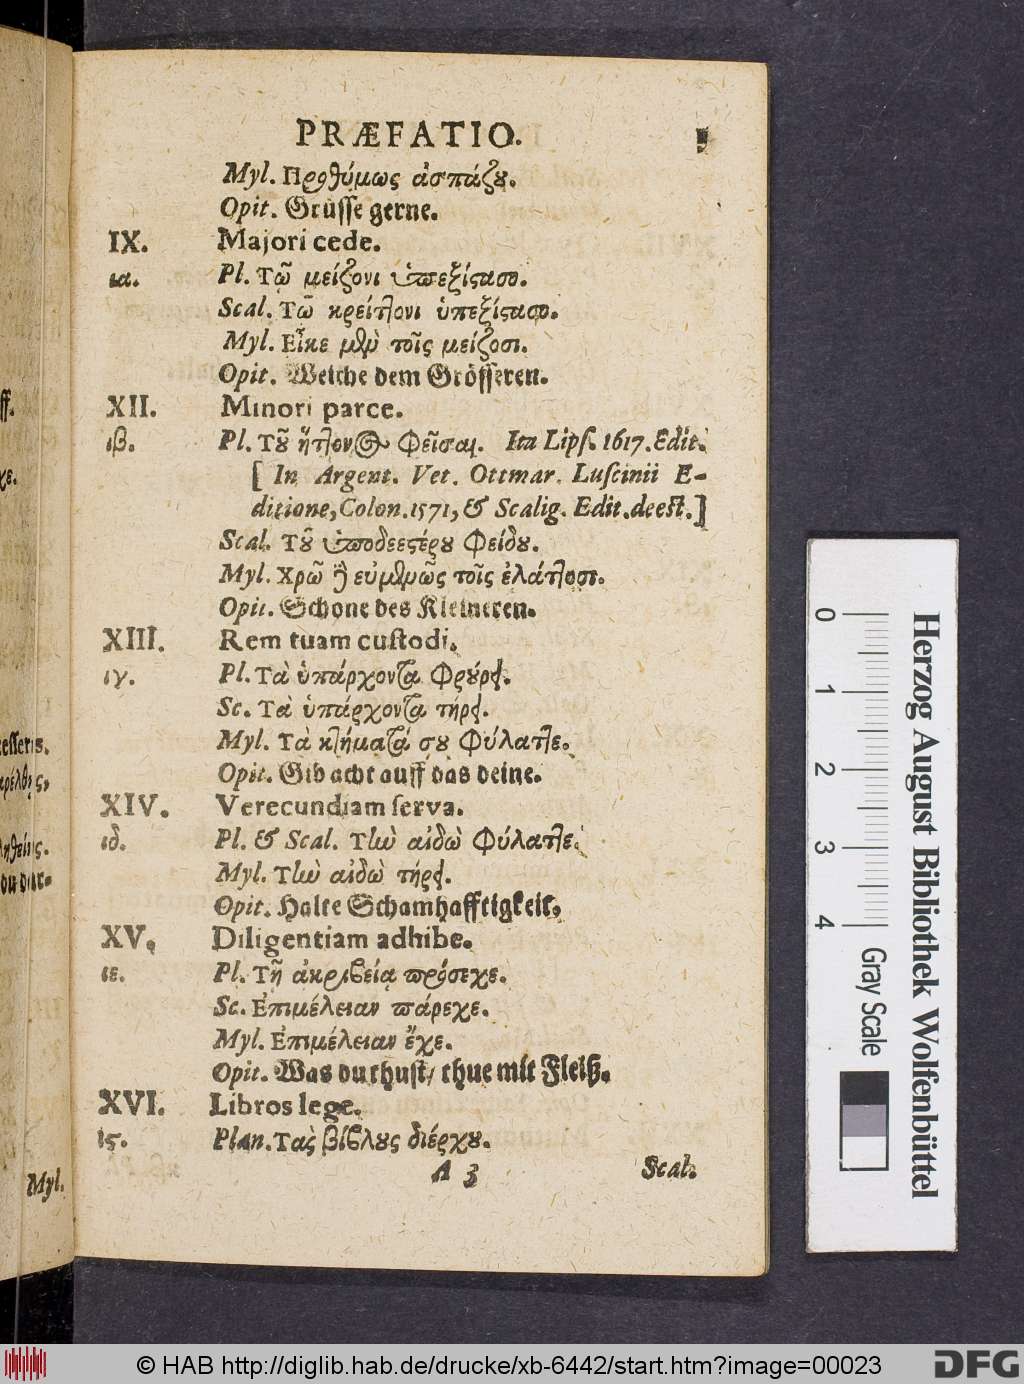 PRÆFATIO.
Myl. Προθύμως ἀσπάζου.
Opit. Grüsse gerne.
IX. Majori cede.
ια. Pl. Τῷ μείζονι ὑπεξίστασο.
Scal. Τῷ κρείττονι ὑπεξίστασο.
Myl. Εἶκε μὲν τοῖς μείζοσι.
Opit. Weiche dem Grösseren.
XII. Minori parce.
ιβ. Pl. Τοῦ ἥττονος Φεῖσαι. Ita Lipſ. 1617. Edit.
[ In Argent. Vet. Ottmar. Luſcinii E-
ditione, Colon. 1571, & Scalig. Edit. deest.]
Scal. Τοῦ ὑποδεεστέρου Φείδου.
Myl. Χρῶ δ' εὐμενῶς τοῖς ἐλάττοσι.
Opit. Schone des Kleineren.
XIII. Rem tuam cuſtodi.
ιγ. Pl. Τὰ ὑπάρχοντα Φρούρει.
Sc. Τὰ ὑπάρχοντα τήρει.
Myl. Τὰ κτήματά σου Φύλαττε.
Opit. Gib acht auff das deine.
XIV. Verecundiam ſerva.
ιδ. Pl. & Scal. Τὴν αἰδῶ Φύλαττε.
Myl. Τὴν αἰδῶ τήρει.
Opit. Halte Schamhafftigkeit.
XV. Diligentiam adhibe.
ιε. Pl. Τῇ ἀκριβείᾳ πρόσεχε.
Sc. Ἐπιμέλειαν πάρεχε.
Myl. Ἐπιμέλειαν ἔχε.
Opit. Was du thust / thue mit Fleiß.
XVI. Libros lege.
ις. Plan. Τὰς βίβλους διέρχου.
A 3 Scal.
Myl.
0 1 2 3 4
Gray Scale
Herzog August Bibliothek Wolfenbüttel
© HAB http://diglib.hab.de/drucke/xb-6442/start.htm?image=00023
DFG